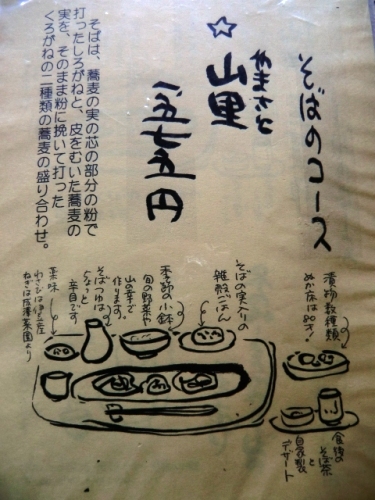 そばのコース
☆
やまさと
山里
一五七五円
そばは、蕎麦の実の芯の部分の粉で
打ったしろがねと、皮をむいた蕎麦の
実を、そのまま粉に挽いて打った
くろがねの二種類の蕎麦の盛り合わせ。
漬物数種類
ぬか床は80才!
そばの実入りの
雑穀ごはん
季節の小鉢
旬の野菜や
山の幸で
作ります。
そばつゆは
ちょっと
辛目です
薬味
わさびは伊豆産
ねぎは唐澤菜園より
食後の
そば茶
と
自家製
デザート